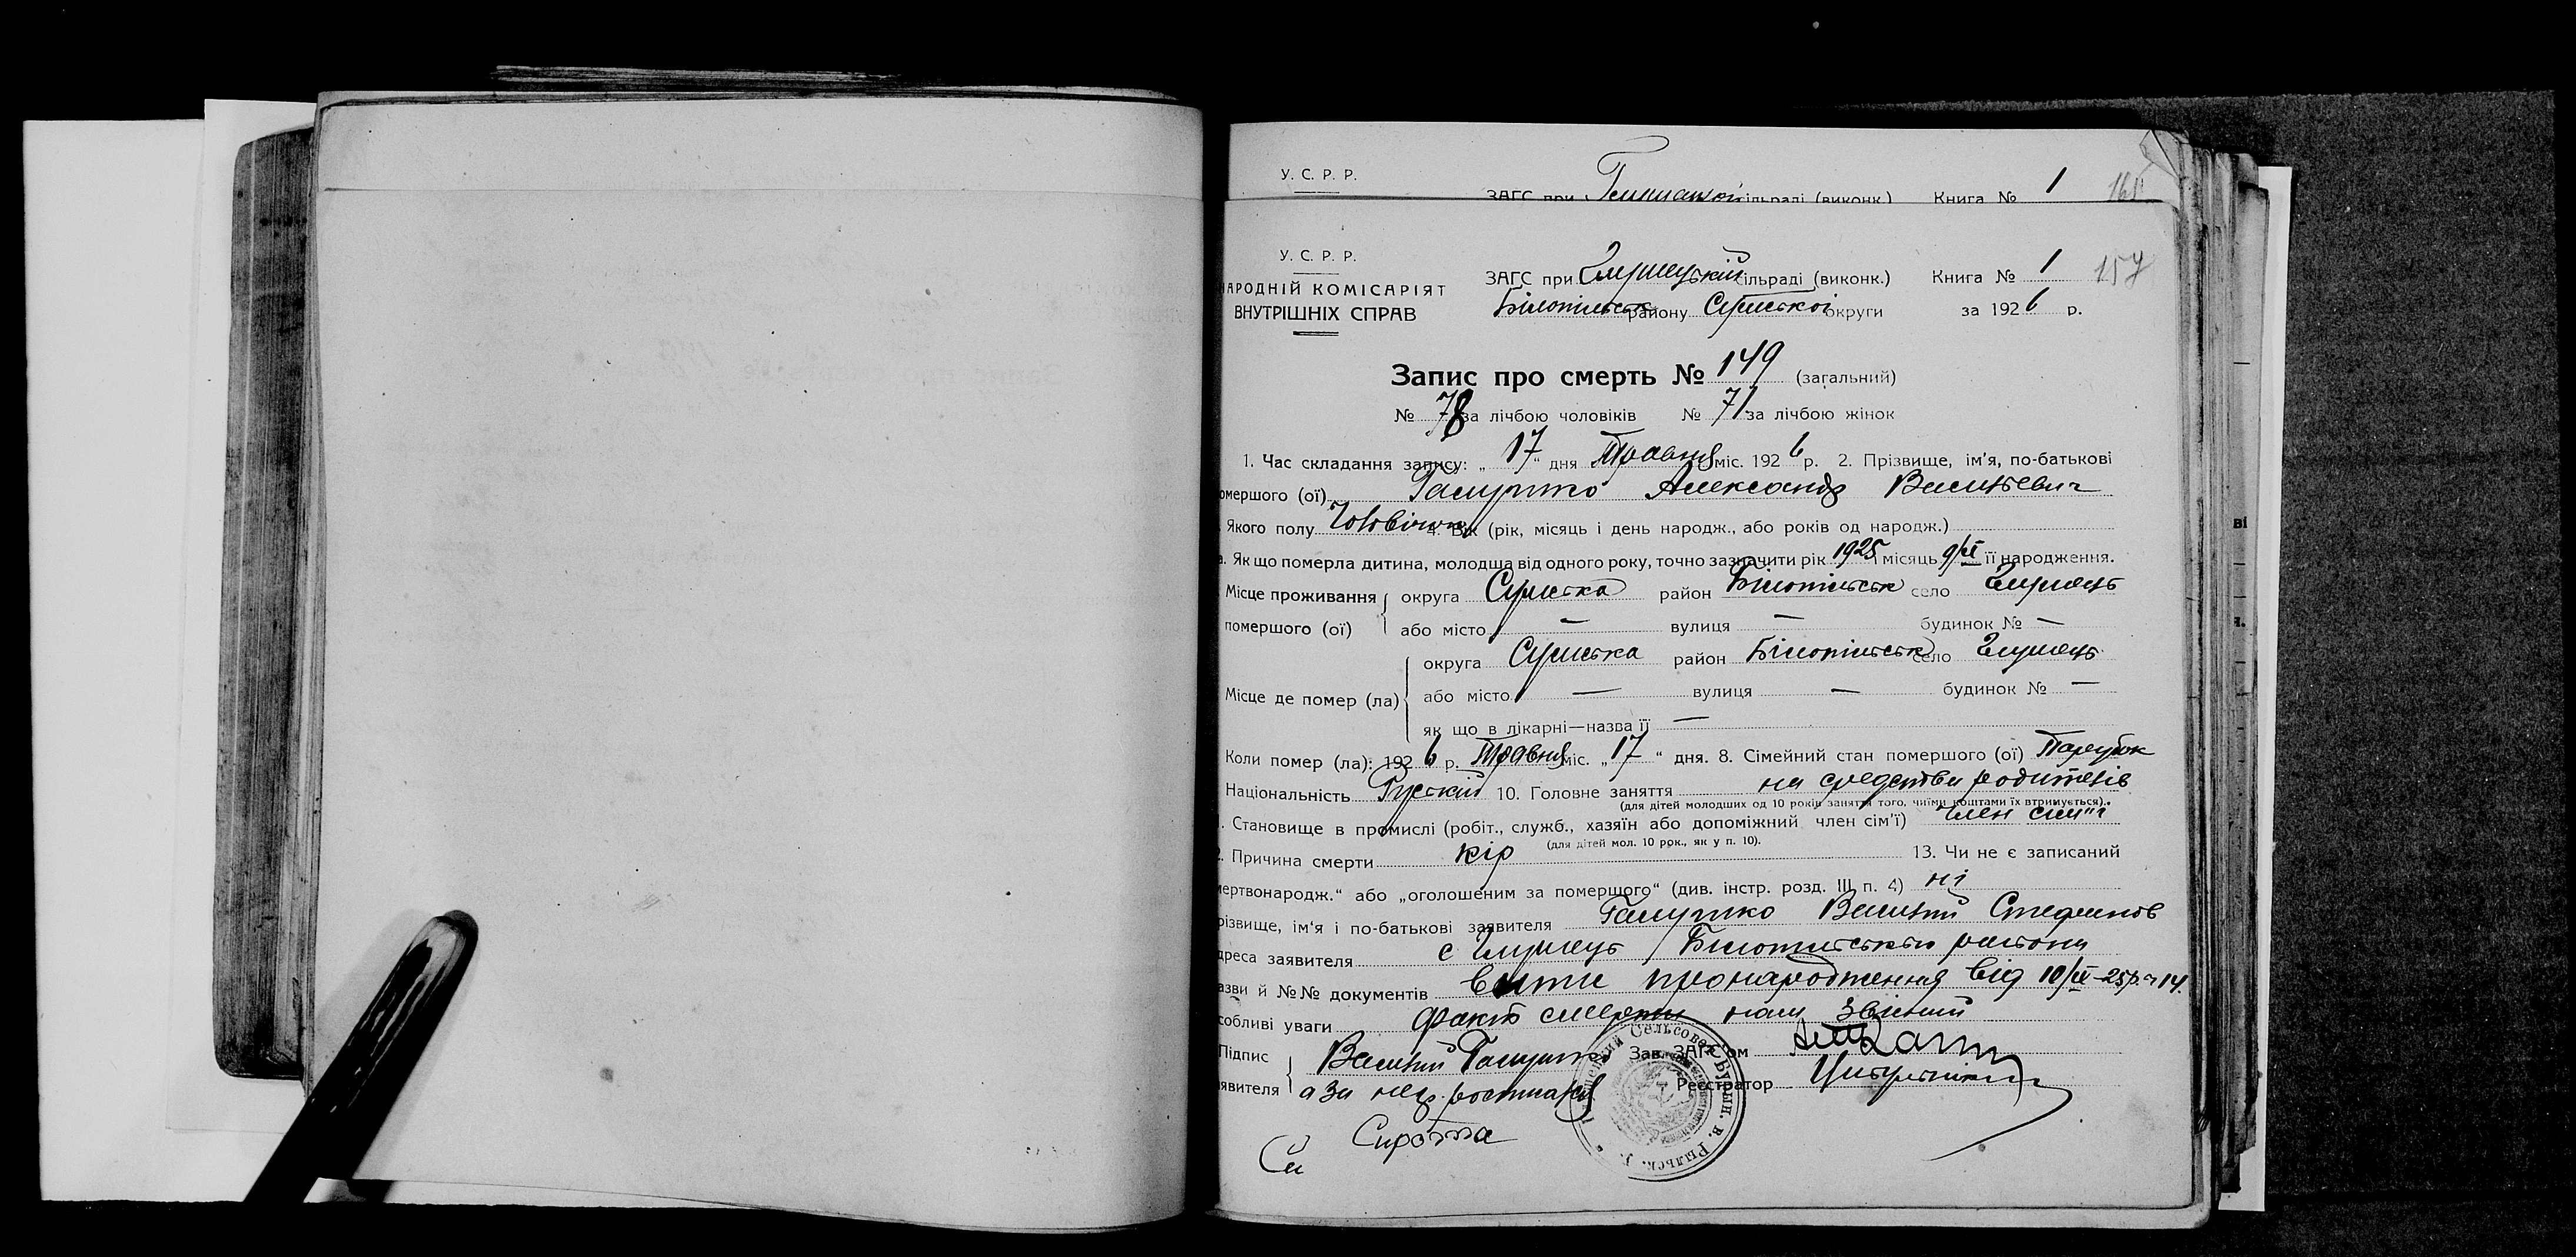 У. С. Р. Р.
ЗАГС при сільраді (виконк.) Книга № 1 161
У. С. Р. Р.
НАРОДНІЙ КОМІСАРІЯТ
ВНУТРІШНІХ СПРАВ
ЗАГС при Глушецькій сільраді (виконк.) Книга № 1 157
Білопільськ району Сумської округи за 1926 р.
Запис про смерть № 149 (загальний)
№ 78 за лічбою чоловіків № 71 за лічбою жінок
1. Час складання запису: „17“ дня Травня міс. 1926 р. 2. Прізвище, ім'я, по-батькові
омершого (ої) Галушко Александр Васильевич
Якого полу Чоловічок 4. Вік (рік, місяць і день народж., або років од народж.)
а. Як що померла дитина, молодша від одного року, точно зазначити рік 1925 місяць 9/ІХ її народження.
Місце проживання округа Сумська район Білопільськ село Глушець
помершого (ої) або місто — вулиця — будинок № —
округа Сумська район Білопільськ село Глушець
Місце де помер (ла) або місто — вулиця — будинок № —
як що в лікарні—назва її —
Коли помер (ла): 1926 р. Травня міс. „17“ дня. 8. Сімейний стан помершого (ої) Парубок
Національність Руський 10. Головне заняття на средстви родителів
(для дітей молодших од 10 років заняття того, чиїми коштами їх втримується).
. Становище в промислі (робіт., служб., хазяїн або допоміжний член сім'ї) член сим'ї
(для дітей мол. 10 рок., як у п. 10).
2. Причина смерти кір 13. Чи не є записаний
мертвонародж.“ або „оголошеним за помершого“ (див. інстр. розд. III п. 4) ні
різвище, ім'я і по-батькові заявителя Галушко Василий Стефанов
дреса заявителя с Глушець Білопільського району
азви й №№ документів про народження від 10/ІХ-25р. № 14.
собливі уваги факт смерти нам звісний
Підпис
явителя
Василий Галушко Зав. ЗАГС'ом
а за нег. Реєстратор
Сирота
Сельсовет Бурын. в. Рыльск. у.